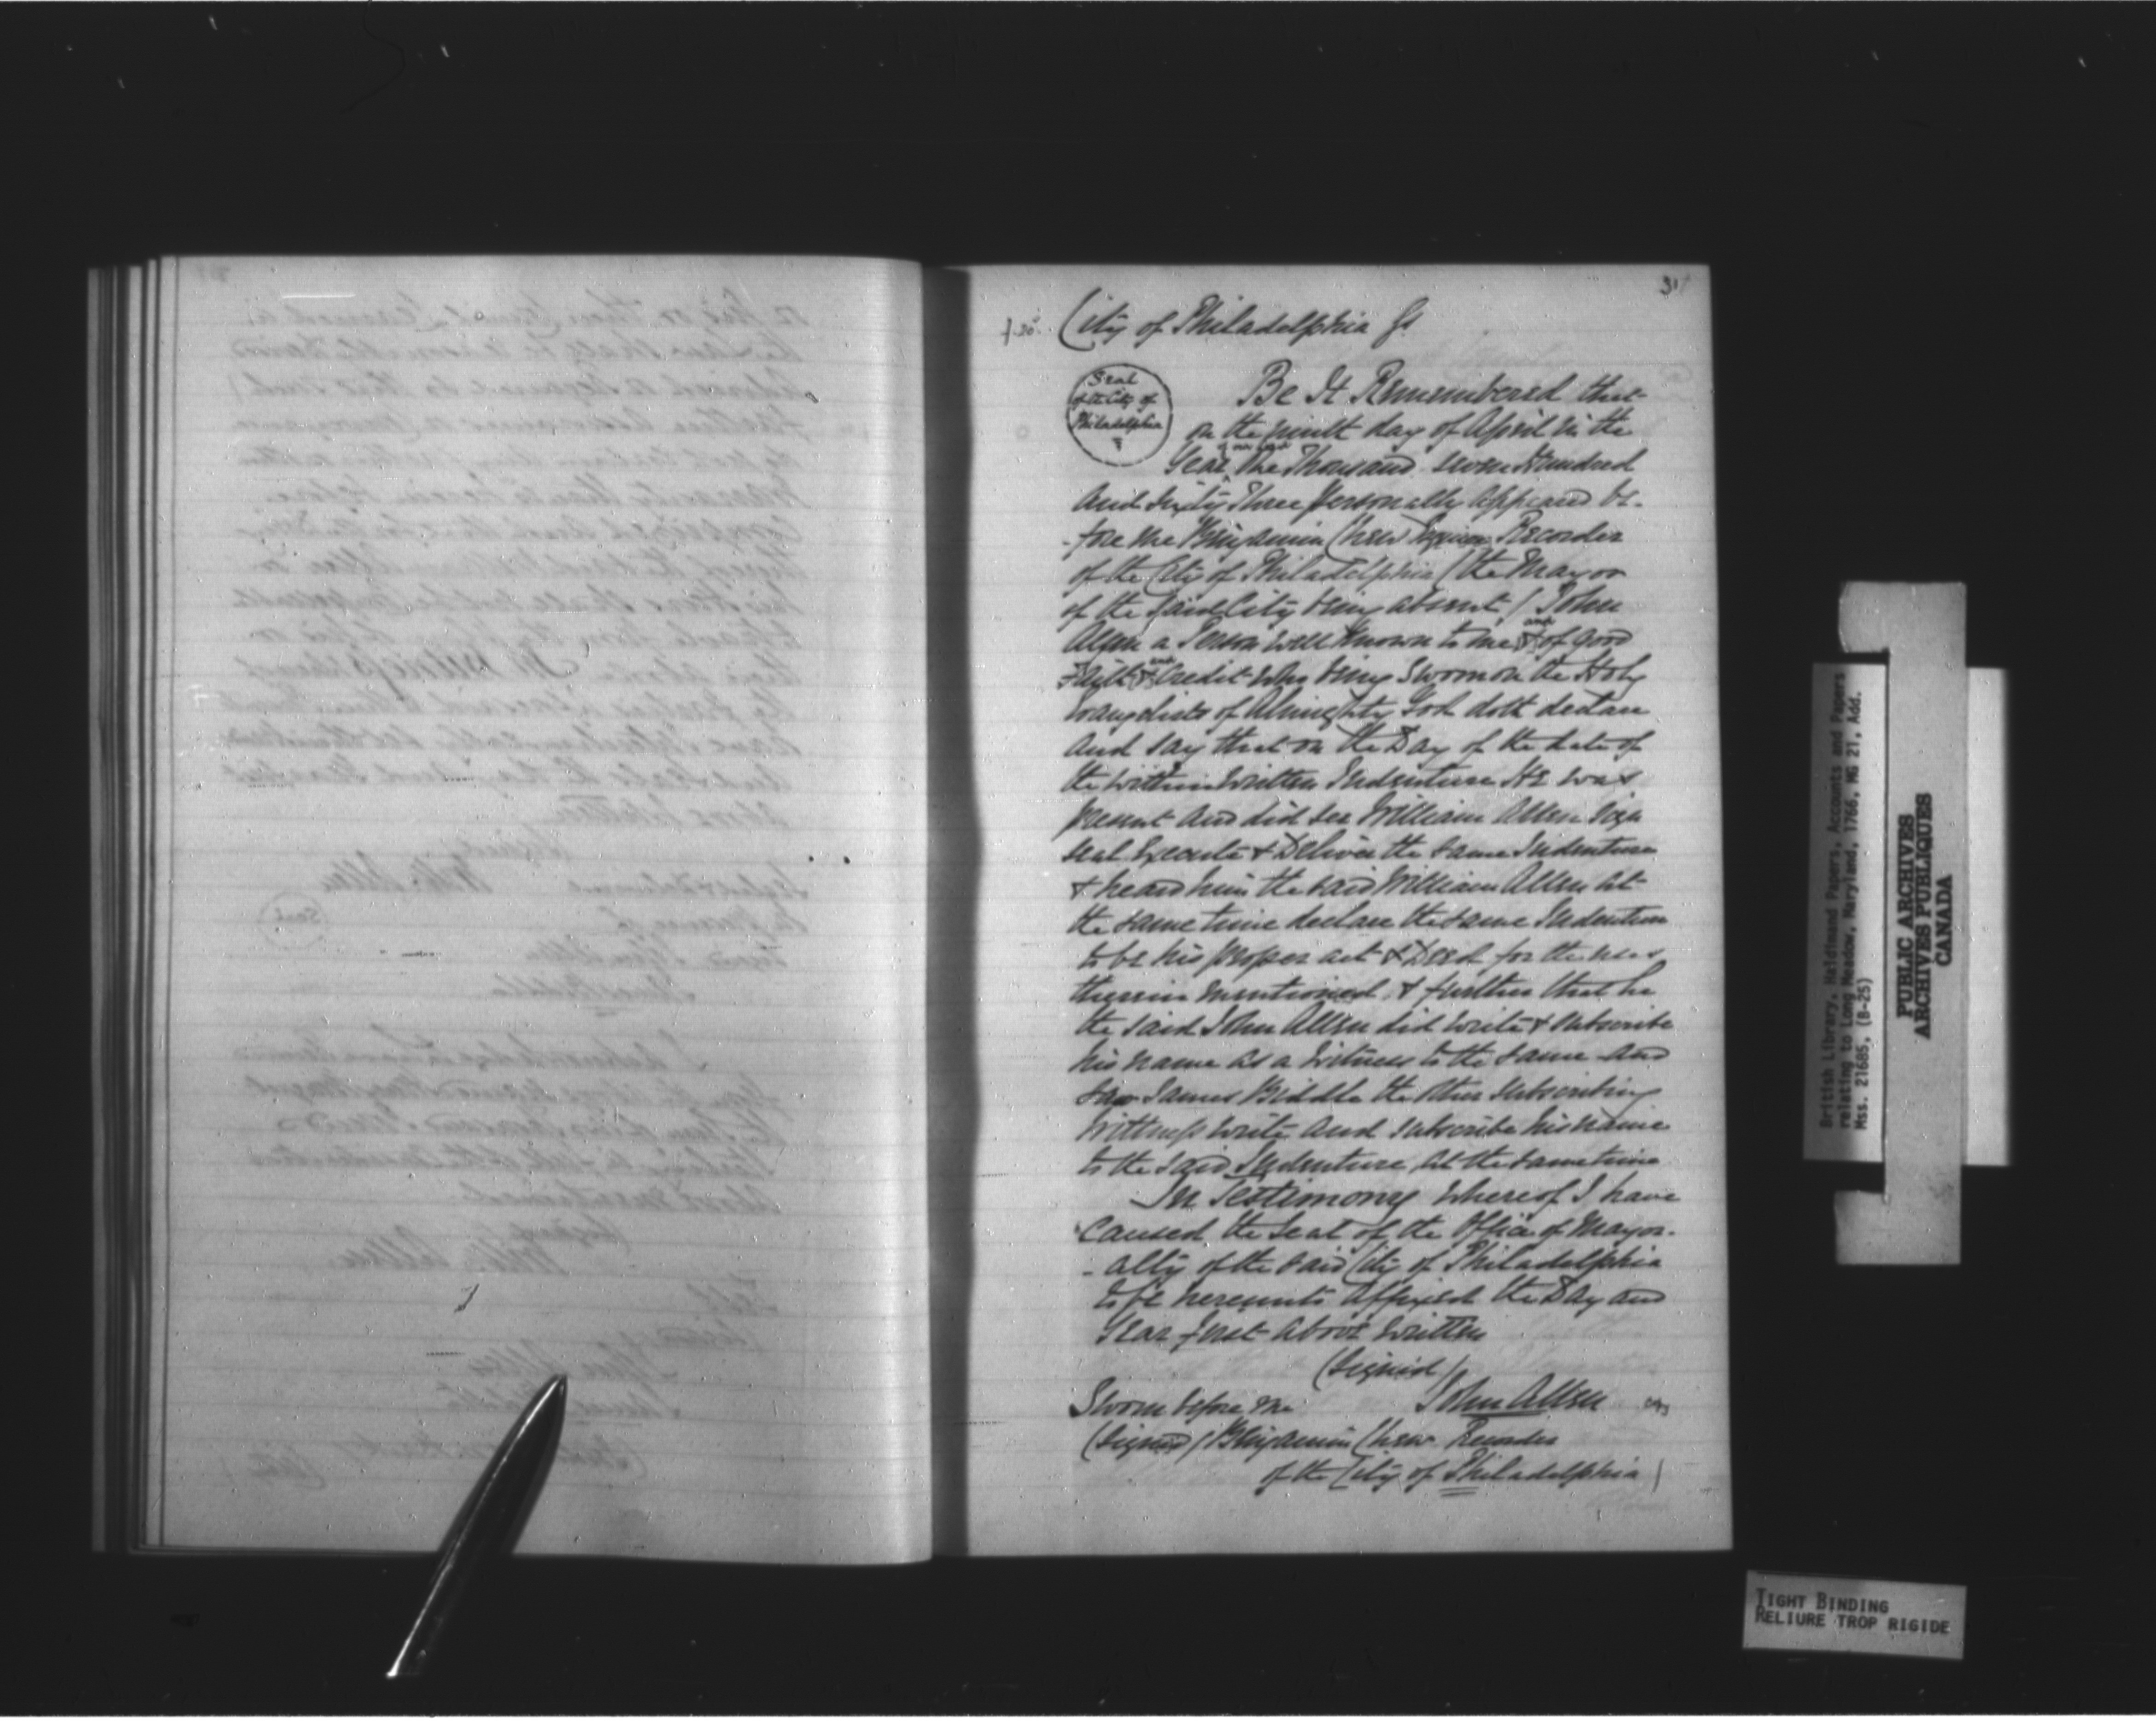 31
f. 30. City of Philadelphia Ss
Seal
of the City of
Philadelphia
Be It Remembered that
on the ninth day of April in the
Year one Thousand seven Hundred
and Sixty Three personally appeared be-
-fore me Benjamin Chew Esquire Recorder
of the City of Philadelphia (the Mayor
of the said City being absent) John
Allen a Person well known to me and of good
Faith and Credit who being Sworn on the Holy
Evangelists of Almighty God doth declare
and say that on the Day of the date of
the within written Indenture He was
present and did see William Allen sign
seal Execute & Deliver the same Indenture
& heard him the said William Allen at
the same time declare the same Indenture
to be his proper act & Deed for the uses
therein mentioned & further that he
the said John Allen did write & subscribe
his name as a Witness to the same and
saw James Biddle the other subscribing
Wittness write and subscribe his name
to the said Indenture at the same time
In Testimony whereof I have
caused the Seal of the Office of Mayor-
-alty of the said City of Philadelphia
to be hereunto affixed the Day and
Year first above written
(Signed)
Sworn before me John Allen
(Signed) Benjamin Chew Recorder
of the City of Philadelphia)
British Library, Haldimand Papers, Accounts and Papers
relating to Long Meadow, Maryland, 1766, MG 21, Add.
Mss. 21685, (B-25)
PUBLIC ARCHIVES
ARCHIVES PUBLIQUES
CANADA
TIGHT BINDING
RELIURE TROP RIGIDE